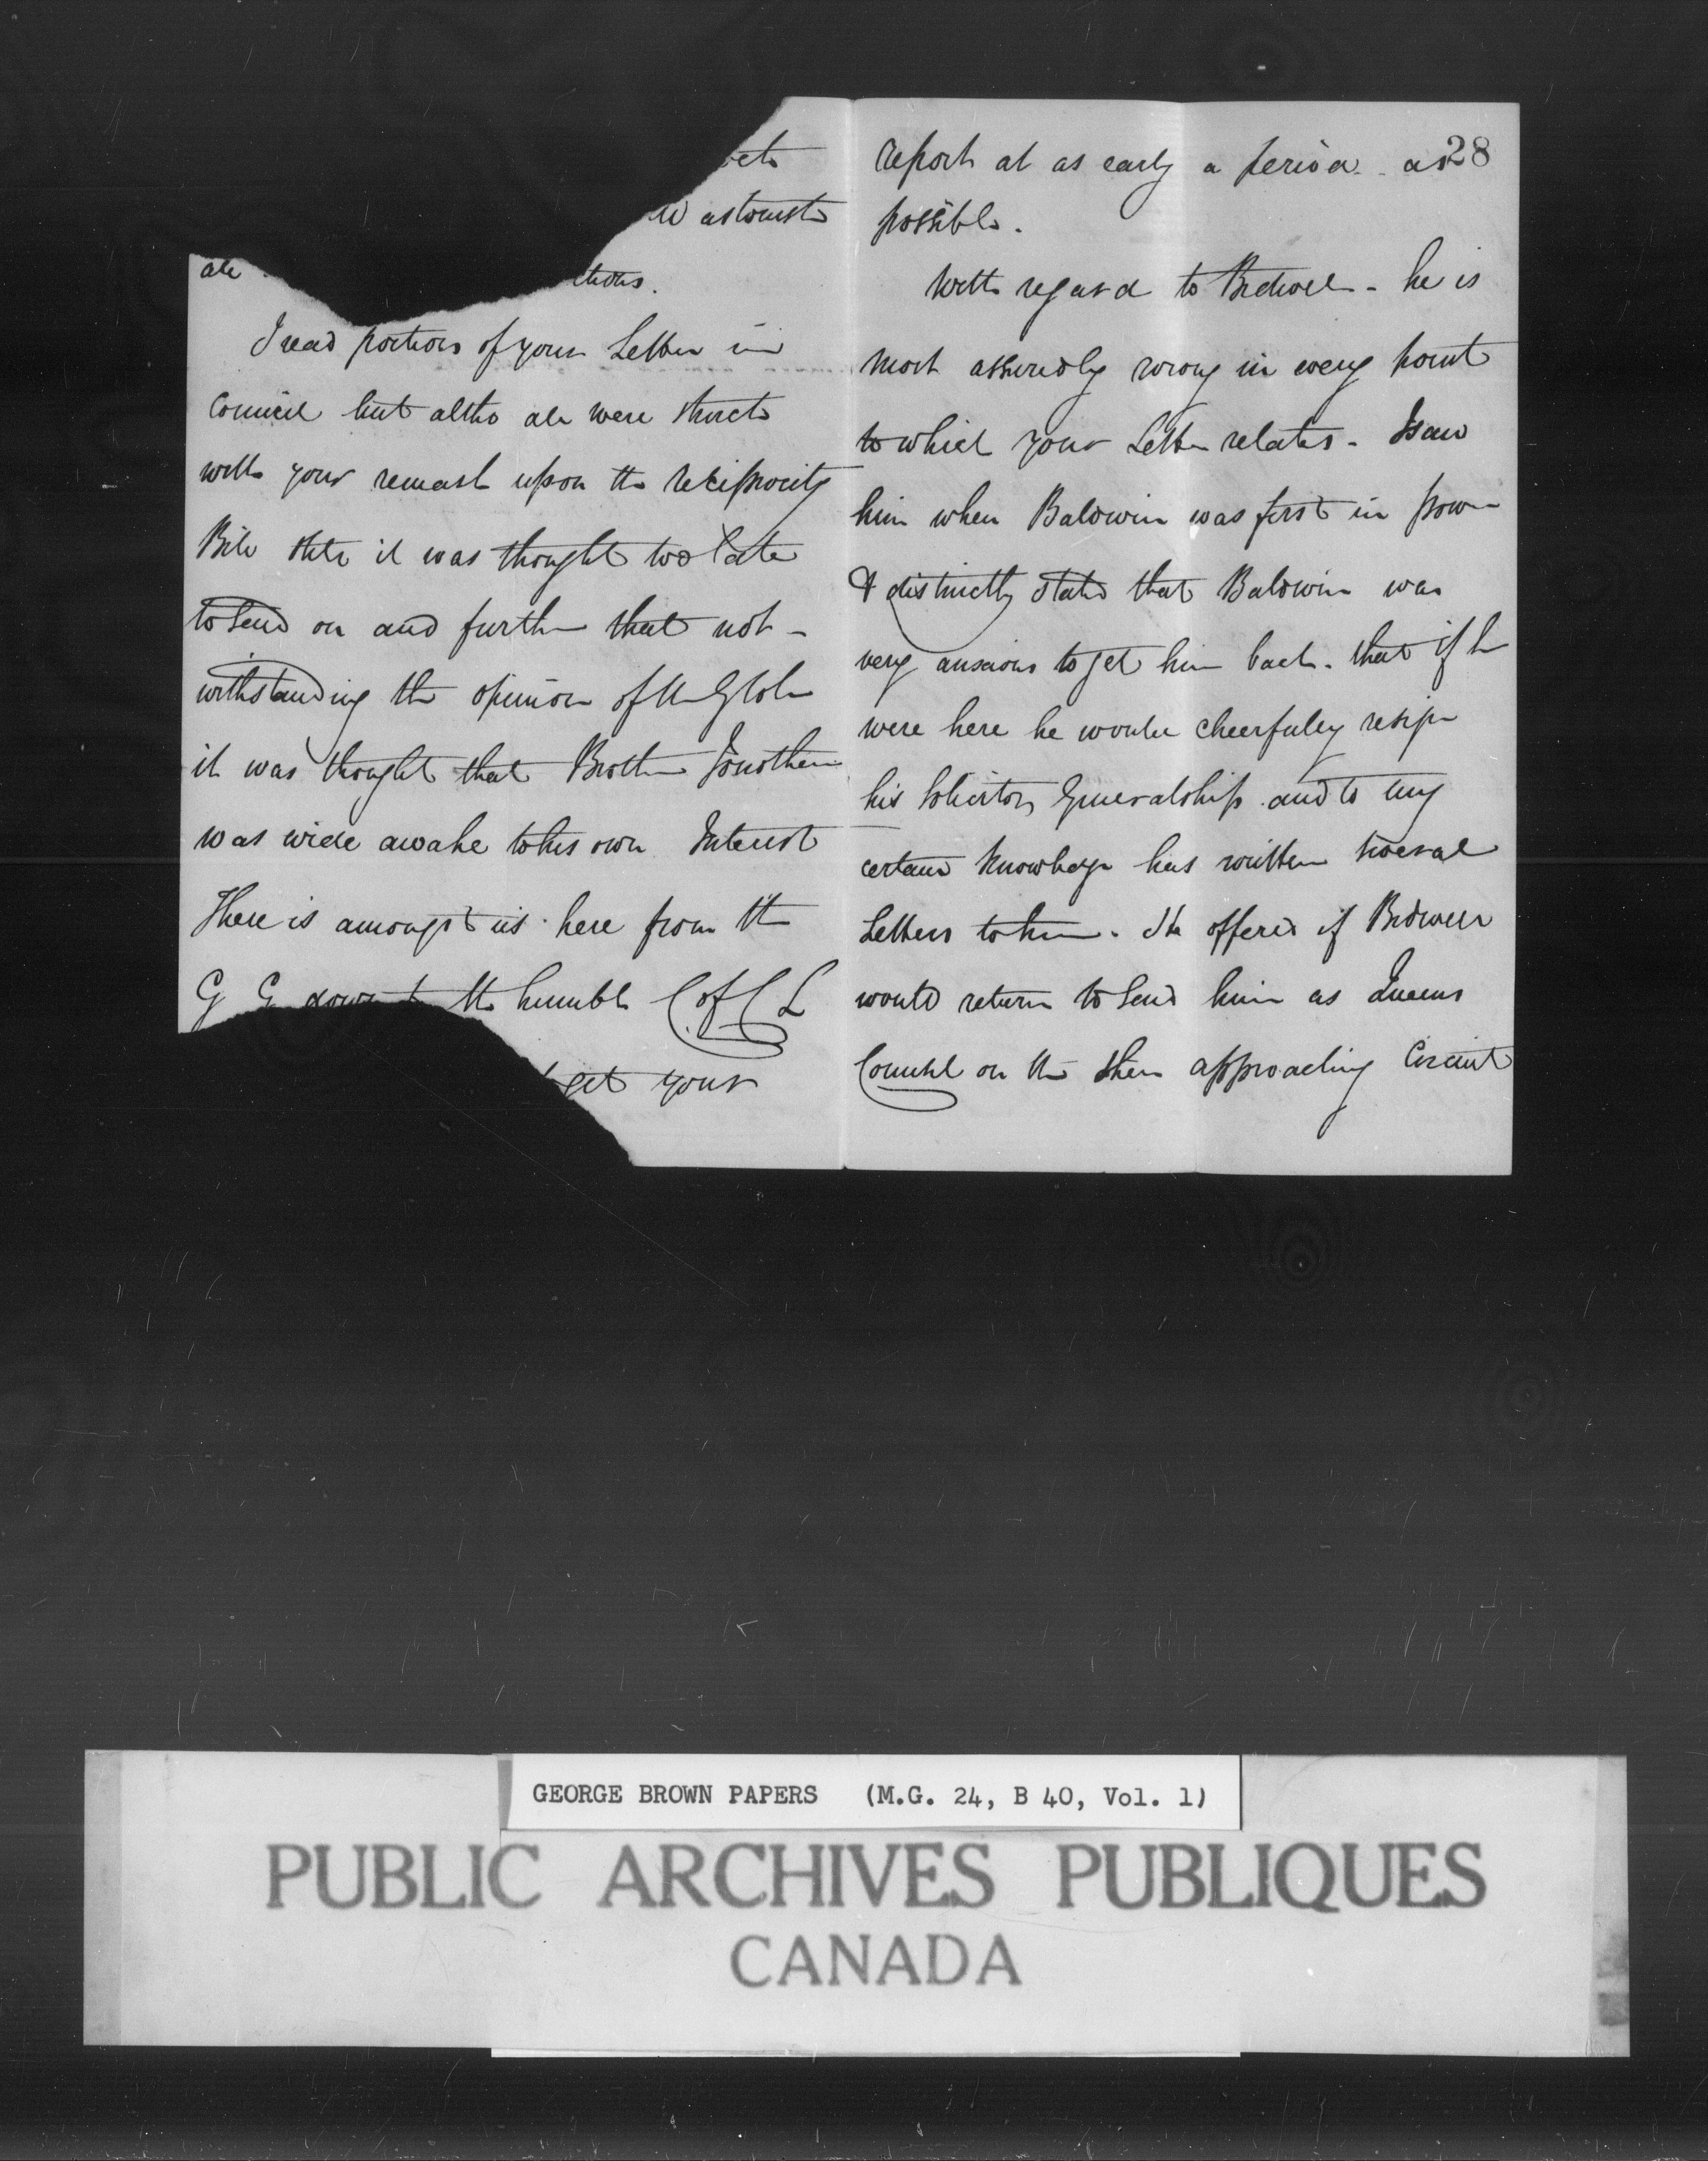 astonish
all
ctions.
I read portions of your Letter in
Council but altho all were struck
with your remark upon the reciprocity
Bill still it was thought too late
to send on and further that not-
withstanding the opinion of the Globe
it was thought that Brother Jonathan
was wide awake to his own Interest
There is amongst us here from the
G G down to the humble C of C L
get your
28
report at as early a period as
possible.
With regard to Bidwell - he is
most assuredly wrong in every point
to which your Letter relates - I saw
him when Baldwin was first in power
& distinctly stated that Baldwin was
very anxious to get him back. that if he
were here he would cheerfully resign
his Solicitor Generalship and to my
certain knowledge has written several
Letters to him. He offered if Bidwell
would return to send him as Queens
Counsel on the then approaching Circuit
GEORGE BROWN PAPERS (M.G. 24, B 40, Vol. 1)
PUBLIC ARCHIVES PUBLIQUES
CANADA